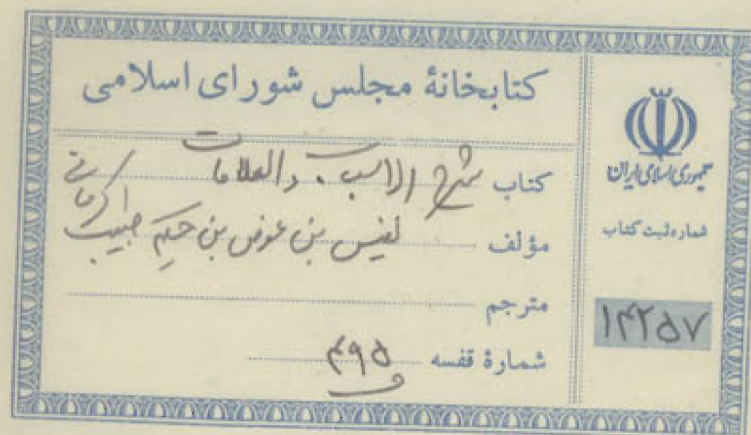 کتابخانهٔ مجلس شورای اسلامی
کتاب شرح الاسباب والعلامات
مؤلف نفیس بن عوض بن حکیم طبیب کرمانی
مترجم
شمارهٔ قفسه ۴۹۵
جمهوری اسلامی ایران
شماره ثبت کتاب
۱۴۲۵۷